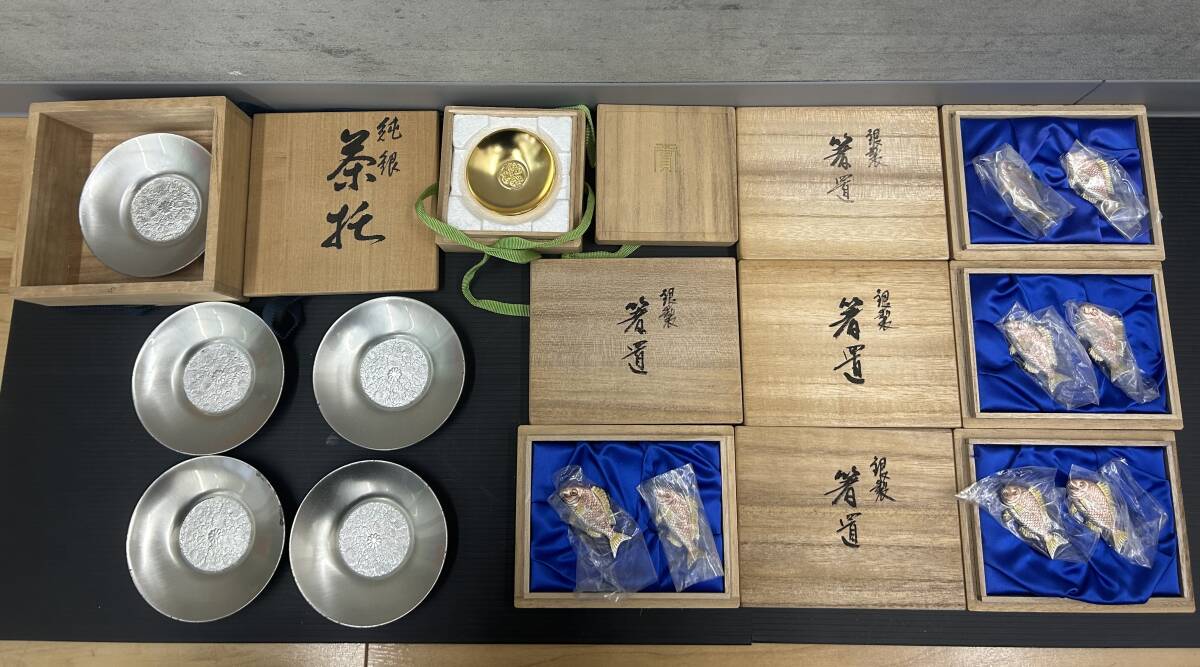 純銀
茶托
貢
銀製
箸置
銀製
箸置
銀製
箸置
銀製
箸置